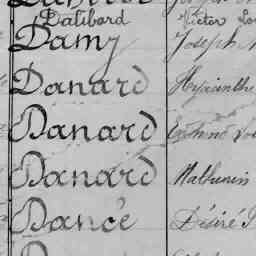 Dalibard Victor
Damy Joseph
Danard Hyacinthe
Danard
Danard Mathurin
Dancé Désiré